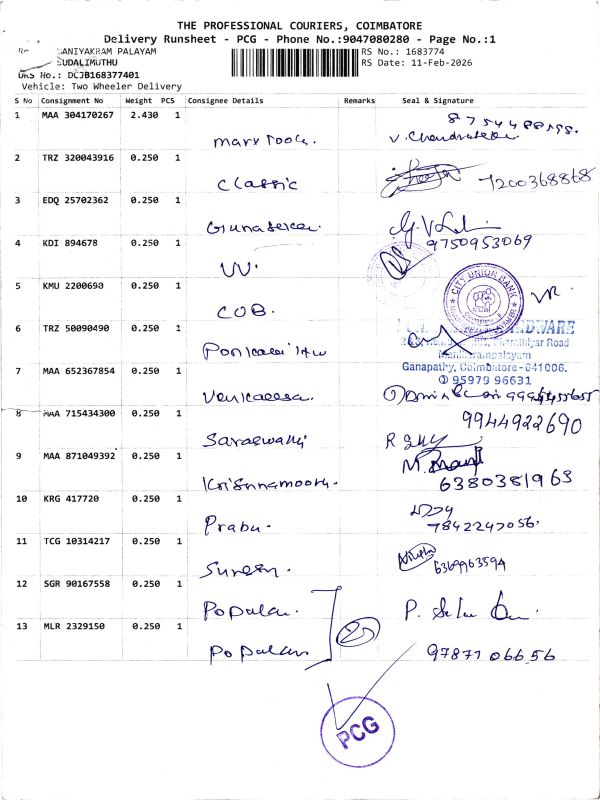 THE PROFESSIONAL COURIERS, COIMBATORE
Delivery Runsheet - PCG - Phone No.:9047080280 - Page No.:1
MANIYAKRAM PALAYAM RS No.: 1683774
SUDALIMUTHU RS Date: 11-Feb-2026
DRS No.: DCJB168377401
Vehicle: Two Wheeler Delivery
S No Consignment No Weight PCS Consignee Details Remarks Seal & Signature
1 MAA 304170267 2.430 1
Marx Tools.
2 TRZ 320043916 0.250 1
Classic 7200368868
3 EDQ 25702362 0.250 1
Gunasekar.
4 KDI 894678 0.250 1 9750953069
VV.
5 KMU 2200690 0.250 1 CITY UNION BANK
CUB.
6 TRZ 50090490 0.250 1 HARDWARE
Bharathiyar Road
Manikarampalayam
7 MAA 652367854 0.250 1 Ganapathy, Coimbatore - 641006.
95979 96631
8 MAA 715434300 0.250 1 9944922690
Saraswathi
9 MAA 871049392 0.250 1
Krishnamoorthy. 6380381963
10 KRG 417720 0.250 1
Prabu. 7842247056.
11 TCG 10314217 0.250 1
Suresh. 6369963594
12 SGR 90167558 0.250 1
Popular.
13 MLR 2329150 0.250 1
Popular 9787706656
PCG